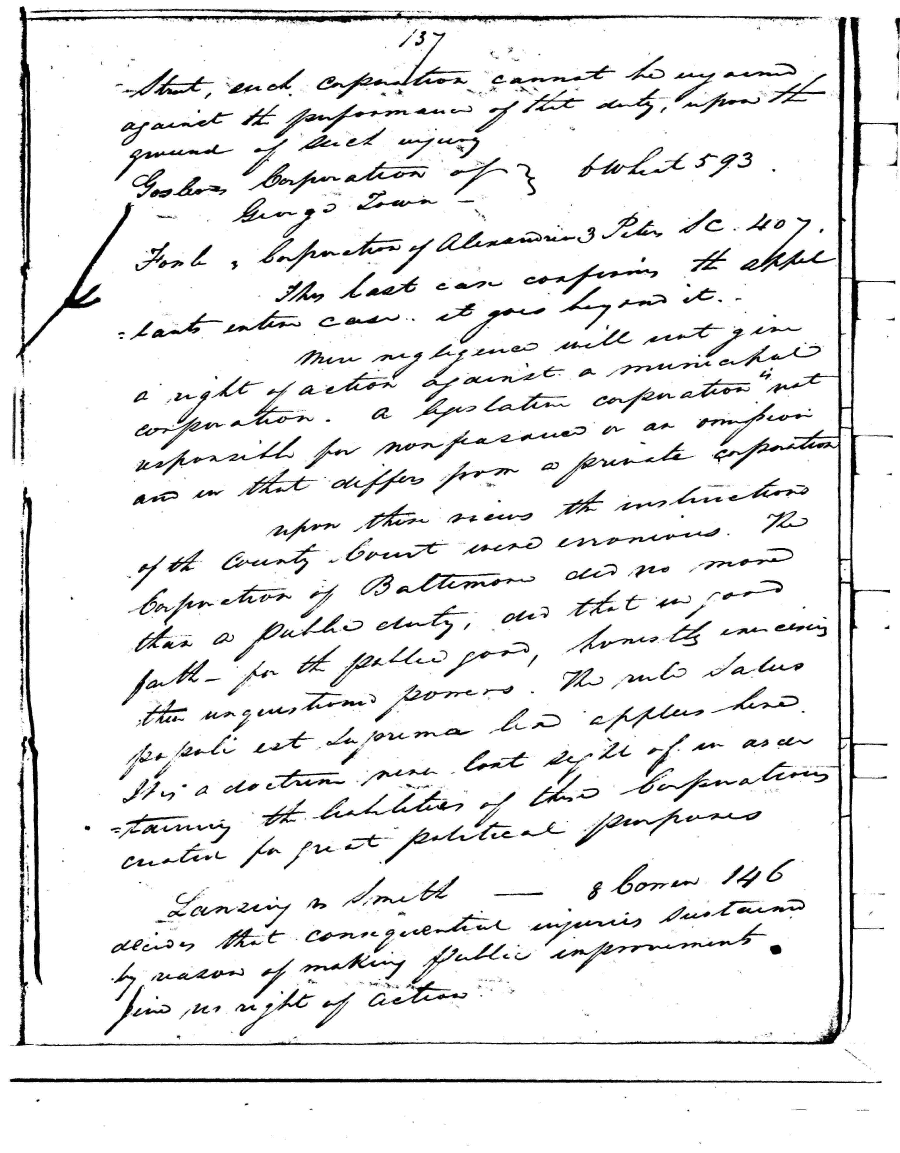 137
Street, such corporation cannot be enjoined
against th performance of that duty, upon th
ground of such injury
Goslers Corporation of } 6 Wheat 593.
George Town -
Fowle Corporation of Alexandria 3 Peters SC. 407.
This last case confirms th appel
=lants entire case. it goes beyond it.
Mere negligence will not give
a right of action against a municipal
corporation. a legislative corporation is not
responsible for nonfeasance or an omission
and in that differs from a private corporation
upon these views th instructions
of th County Court were erronious. The
Corporation of Baltimore did no more
than a public duty, did that in good
faith - for th public good, honestly exercising
their unquestioned powers. The rule Salus
populi est Suprema lex applies here.
It is a doctrine never lost sight of in ascer
=taining th liabilities of these Corporations
created for great political purposes
Lansing vs Smith — 8 Cowen 146
decides that consequential injuries sustained
by reason of making public improvements
give no right of action